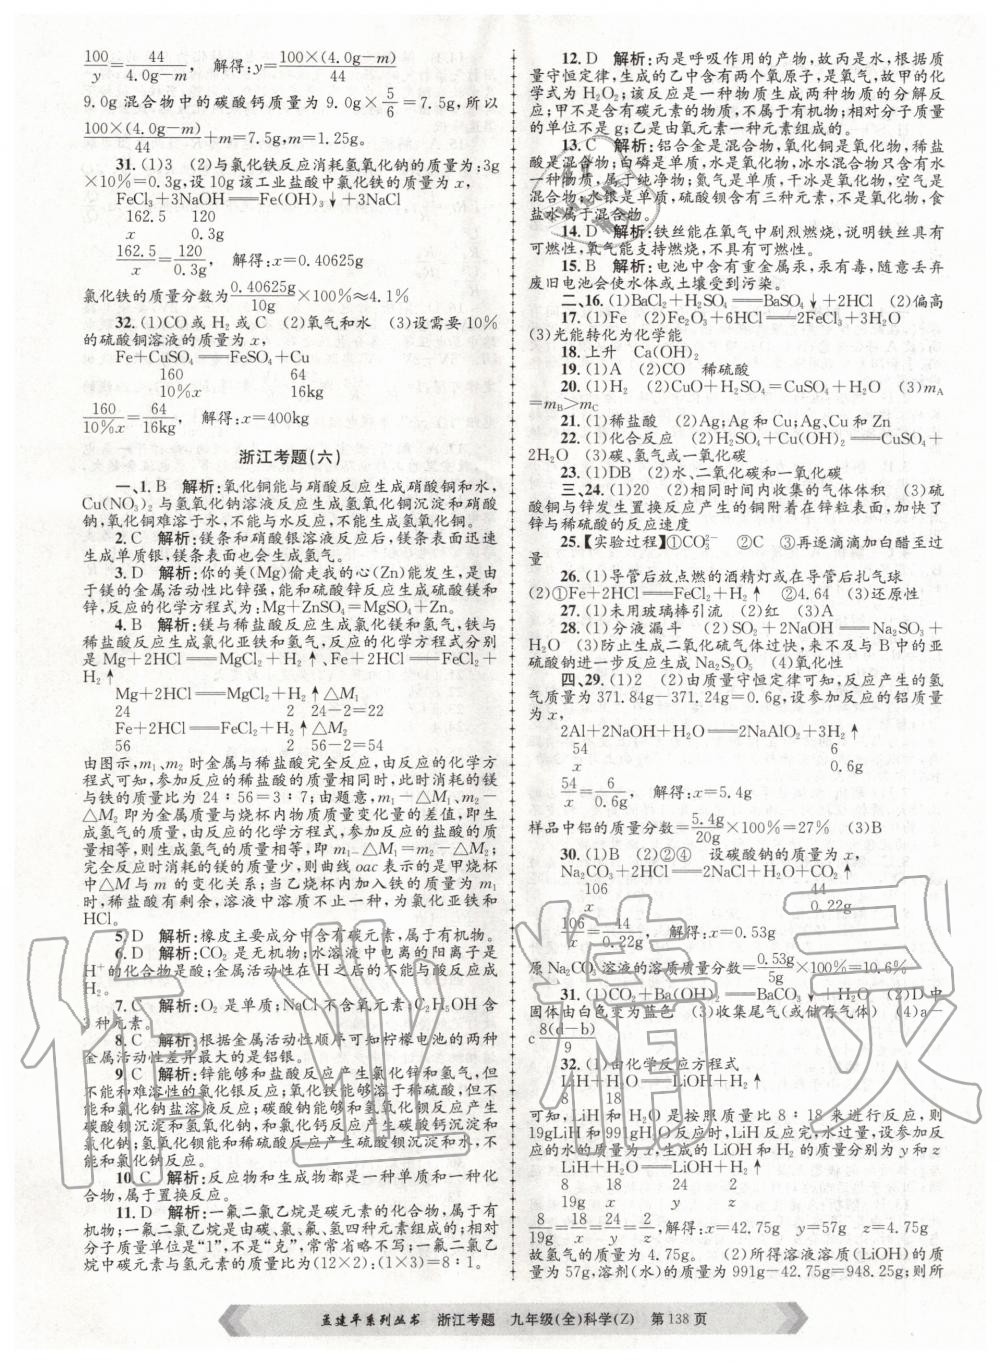 100/y=44/(4.0g-m), 解得:y=100×(4.0g-m)/44
9.0g混合物中的碳酸钙质量为9.0g×5/6=7.5g,所以
100×(4.0g-m)/44+m=7.5g,m=1.25g。
31.(1)3 (2)与氯化铁反应消耗氢氧化钠的质量为:3g
×10%=0.3g,设10g该工业盐酸中氯化铁的质量为x,
FeCl₃+3NaOH══Fe(OH)₃↓+3NaCl
162.5 120
x 0.3g
162.5/x=120/0.3g, 解得:x=0.40625g
氯化铁的质量分数为0.40625g/10g×100%≈4.1%
32.(1)CO或H₂或C (2)氧气和水 (3)设需要10%
的硫酸铜溶液的质量为x,
Fe+CuSO₄══FeSO₄+Cu
160 64
10%x 16kg
160/10%x=64/16kg, 解得:x=400kg
浙江考题(六)
一、1.B 解析:氧化铜能与硝酸反应生成硝酸铜和水,
Cu(NO₃)₂与氢氧化钠溶液反应生成氢氧化铜沉淀和硝酸
钠,氧化铜难溶于水,不能与水反应,不能生成氢氧化铜。
2.C 解析:镁条和硝酸银溶液反应后,镁条表面迅速
生成单质银,镁条表面也会生成氢气。
3.D 解析:你的美(Mg)偷走我的心(Zn)能发生,是由
于镁的金属活动性比锌强,能和硫酸锌反应生成硫酸镁和
锌,反应的化学方程式为:Mg+ZnSO₄=MgSO₄+Zn。
4.B 解析:镁与稀盐酸反应生成氯化镁和氢气,铁与
稀盐酸反应生成氯化亚铁和氢气,反应的化学方程式分别
是Mg+2HCl══MgCl₂+H₂↑、Fe+2HCl══FeCl₂+
H₂↑
Mg+2HCl══MgCl₂+H₂↑△M₁
24 2 24-2=22
Fe+2HCl══FeCl₂+H₂↑△M₂
56 2 56-2=54
由图示,m₁、m₂时金属与稀盐酸完全反应,由反应的化学方
程式可知,参加反应的稀盐酸的质量相同时,此时消耗的镁
与铁的质量比为24∶56=3∶7;由题意,m₁-△M₁、m₂-
△M₂即为金属质量与烧杯内物质质量变化量的差值,即生
成氢气的质量,由反应的化学方程式,参加反应的盐酸的质
量相等,则生成氢气的质量相等,即m₁-△M₁=m₂-△M₂;
完全反应时消耗的镁的质量少,则曲线oac表示的是甲烧杯
中△M与m的变化关系;当乙烧杯内加入铁的质量为m₁
时,盐酸有剩余,溶液中溶质不止一种,为氯化亚铁和
HCl。
5.D 解析:橡皮主要成分中含有碳元素,属于有机物。
6.D 解析:CO₂是无机物;水溶液中电离的阳离子是
H⁺的化合物是酸;金属活动性在H之后的不能与酸反应成
H₂。
7.C 解析:O₂是单质;NaCl不含氧元素;C₂H₅OH含
3种元素。
8.C 解析:根据金属活动性顺序表可知柠檬电池的两种
金属活动性差异最大的是铝银。
9.C 解析:锌能够和盐酸反应产生氯化锌和氢气,但
不能和难溶性的氯化银反应;氧化铁能够溶于稀硫酸,但不
能和氯化钠盐溶液反应;碳酸钠能够和氢氧化钡反应产生
碳酸钡沉淀和氢氧化钠,和氯化钙反应产生碳酸钙沉淀和
氯化钠;氢氧化钡能和稀硫酸反应产生硫酸钡沉淀和水,不
能和氯化钠反应。
10.C 解析:反应物和生成物都是一种单质和一种化
合物,属于置换反应。
11.D 解析:一氟二氯乙烷是碳元素的化合物,属于有
机物;一氟二氯乙烷是由碳、氯、氟、氢四种元素组成的;相对
分子质量单位是“1”,不是“克”,常常省略不写;一氟二氯乙
烷中碳元素与氢元素的质量比为(12×2)∶(1×3)=8∶1。
12.D 解析:丙是呼吸作用的产物,故丙是水,根据质
量守恒定律,生成的乙中含有两个氧原子,是氧气,故甲的化
学式为H₂O₂;该反应是一种物质生成两种物质的分解反
应;甲不是含有碳元素的物质,不属于有机物;相对分子质量
的单位不是g;乙是由氧元素一种元素组成的。
13.C 解析:铝合金是混合物,氧化铜是氧化物,稀盐
酸是混合物;白磷是单质,水是氧化物,冰水混合物只含有水
一种物质,属于纯净物;氮气是单质,干冰是氧化物,空气是
混合物;水银是单质,硫酸钡含有三种元素,不是氧化物,食
盐水属于混合物。
14.D 解析:铁丝能在氧气中剧烈燃烧,说明铁丝具有
可燃性,氧气能支持燃烧,不具有可燃性。
15.B 解析:电池中含有重金属汞,汞有毒,随意丢弃
废旧电池会使水体或土壤受到污染。
二、16.(1)BaCl₂+H₂SO₄══BaSO₄↓+2HCl (2)偏高
17.(1)Fe (2)Fe₂O₃+6HCl══2FeCl₃+3H₂O
(3)光能转化为化学能
18.上升 Ca(OH)₂
19.(1)A (2)CO 稀硫酸
20.(1)H₂ (2)CuO+H₂SO₄=CuSO₄+H₂O (3)mA
=mB>mC
21.(1)稀盐酸 (2)Ag;Ag和Cu;Ag、Cu和Zn
22.(1)化合反应 (2)H₂SO₄+Cu(OH)₂══CuSO₄+
2H₂O (3)碳、氢气或一氧化碳
23.(1)DB (2)水、二氧化碳和一氧化碳
三、24.(1)20 (2)相同时间内收集的气体体积 (3)硫
酸铜与锌发生置换反应产生的铜附着在锌粒表面,加快了
锌与稀硫酸的反应速度
25.【实验过程】①CO₃²⁻ ②C ③再逐滴滴加白醋至过
量
26.(1)导管后放点燃的酒精灯或在导管后扎气球
(2)①Fe+2HCl══FeCl₂+H₂↑ ②4.64 (3)还原性
27.(1)未用玻璃棒引流 (2)红 (3)A
28.(1)分液漏斗 (2)SO₂+2NaOH══Na₂SO₃+
H₂O (3)防止生成二氧化硫气体过快,来不及与B中的亚
硫酸钠进一步反应生成Na₂S₂O₅ (4)氧化性
四、29.(1)2 (2)由质量守恒定律可知,反应产生的氢
气质量为371.84g-371.24g=0.6g,设参加反应的铝质量
为x,
2Al+2NaOH+H₂O══2NaAlO₂+3H₂↑
54 6
x 0.6g
54/x=6/0.6g, 解得:x=5.4g
样品中铝的质量分数=5.4g/20g×100%=27% (3)B
30.(1)B (2)②④ 设碳酸钠的质量为x,
Na₂CO₃+2HCl══2NaCl+H₂O+CO₂↑
106 44
x 0.22g
106/x=44/0.22g, 解得:x=0.53g
原Na₂CO₃溶液的溶质质量分数=0.53g/5g×100%=10.6%
31.(1)CO₂+Ba(OH)₂══BaCO₃↓+H₂O (2)D中
固体由白色变为蓝色 (3)收集尾气(或储存气体) (4)a-
c 8(d-b)/9
32.(1)由化学反应方程式
LiH+H₂O══LiOH+H₂↑
8 18
可知,LiH和H₂O是按照质量比8∶18来进行反应,则
19gLiH和991gH₂O反应时,LiH反应完,水过量,设参加反
应的水的质量为x,生成的LiOH和H₂的质量分别为y和z
LiH+H₂O══LiOH+H₂↑
8 18 24 2
19g x y z
8/19g=18/x=24/y=2/z,解得:x=42.75g y=57g z=4.75g
故氢气的质量为4.75g。 (2)所得溶液溶质(LiOH)的质
量为57g,溶剂(水)的质量为991g-42.75g=948.25g;则所
孟建平系列丛书 浙江考题 九年级(全)科学(Z) 第138页
作业精灵